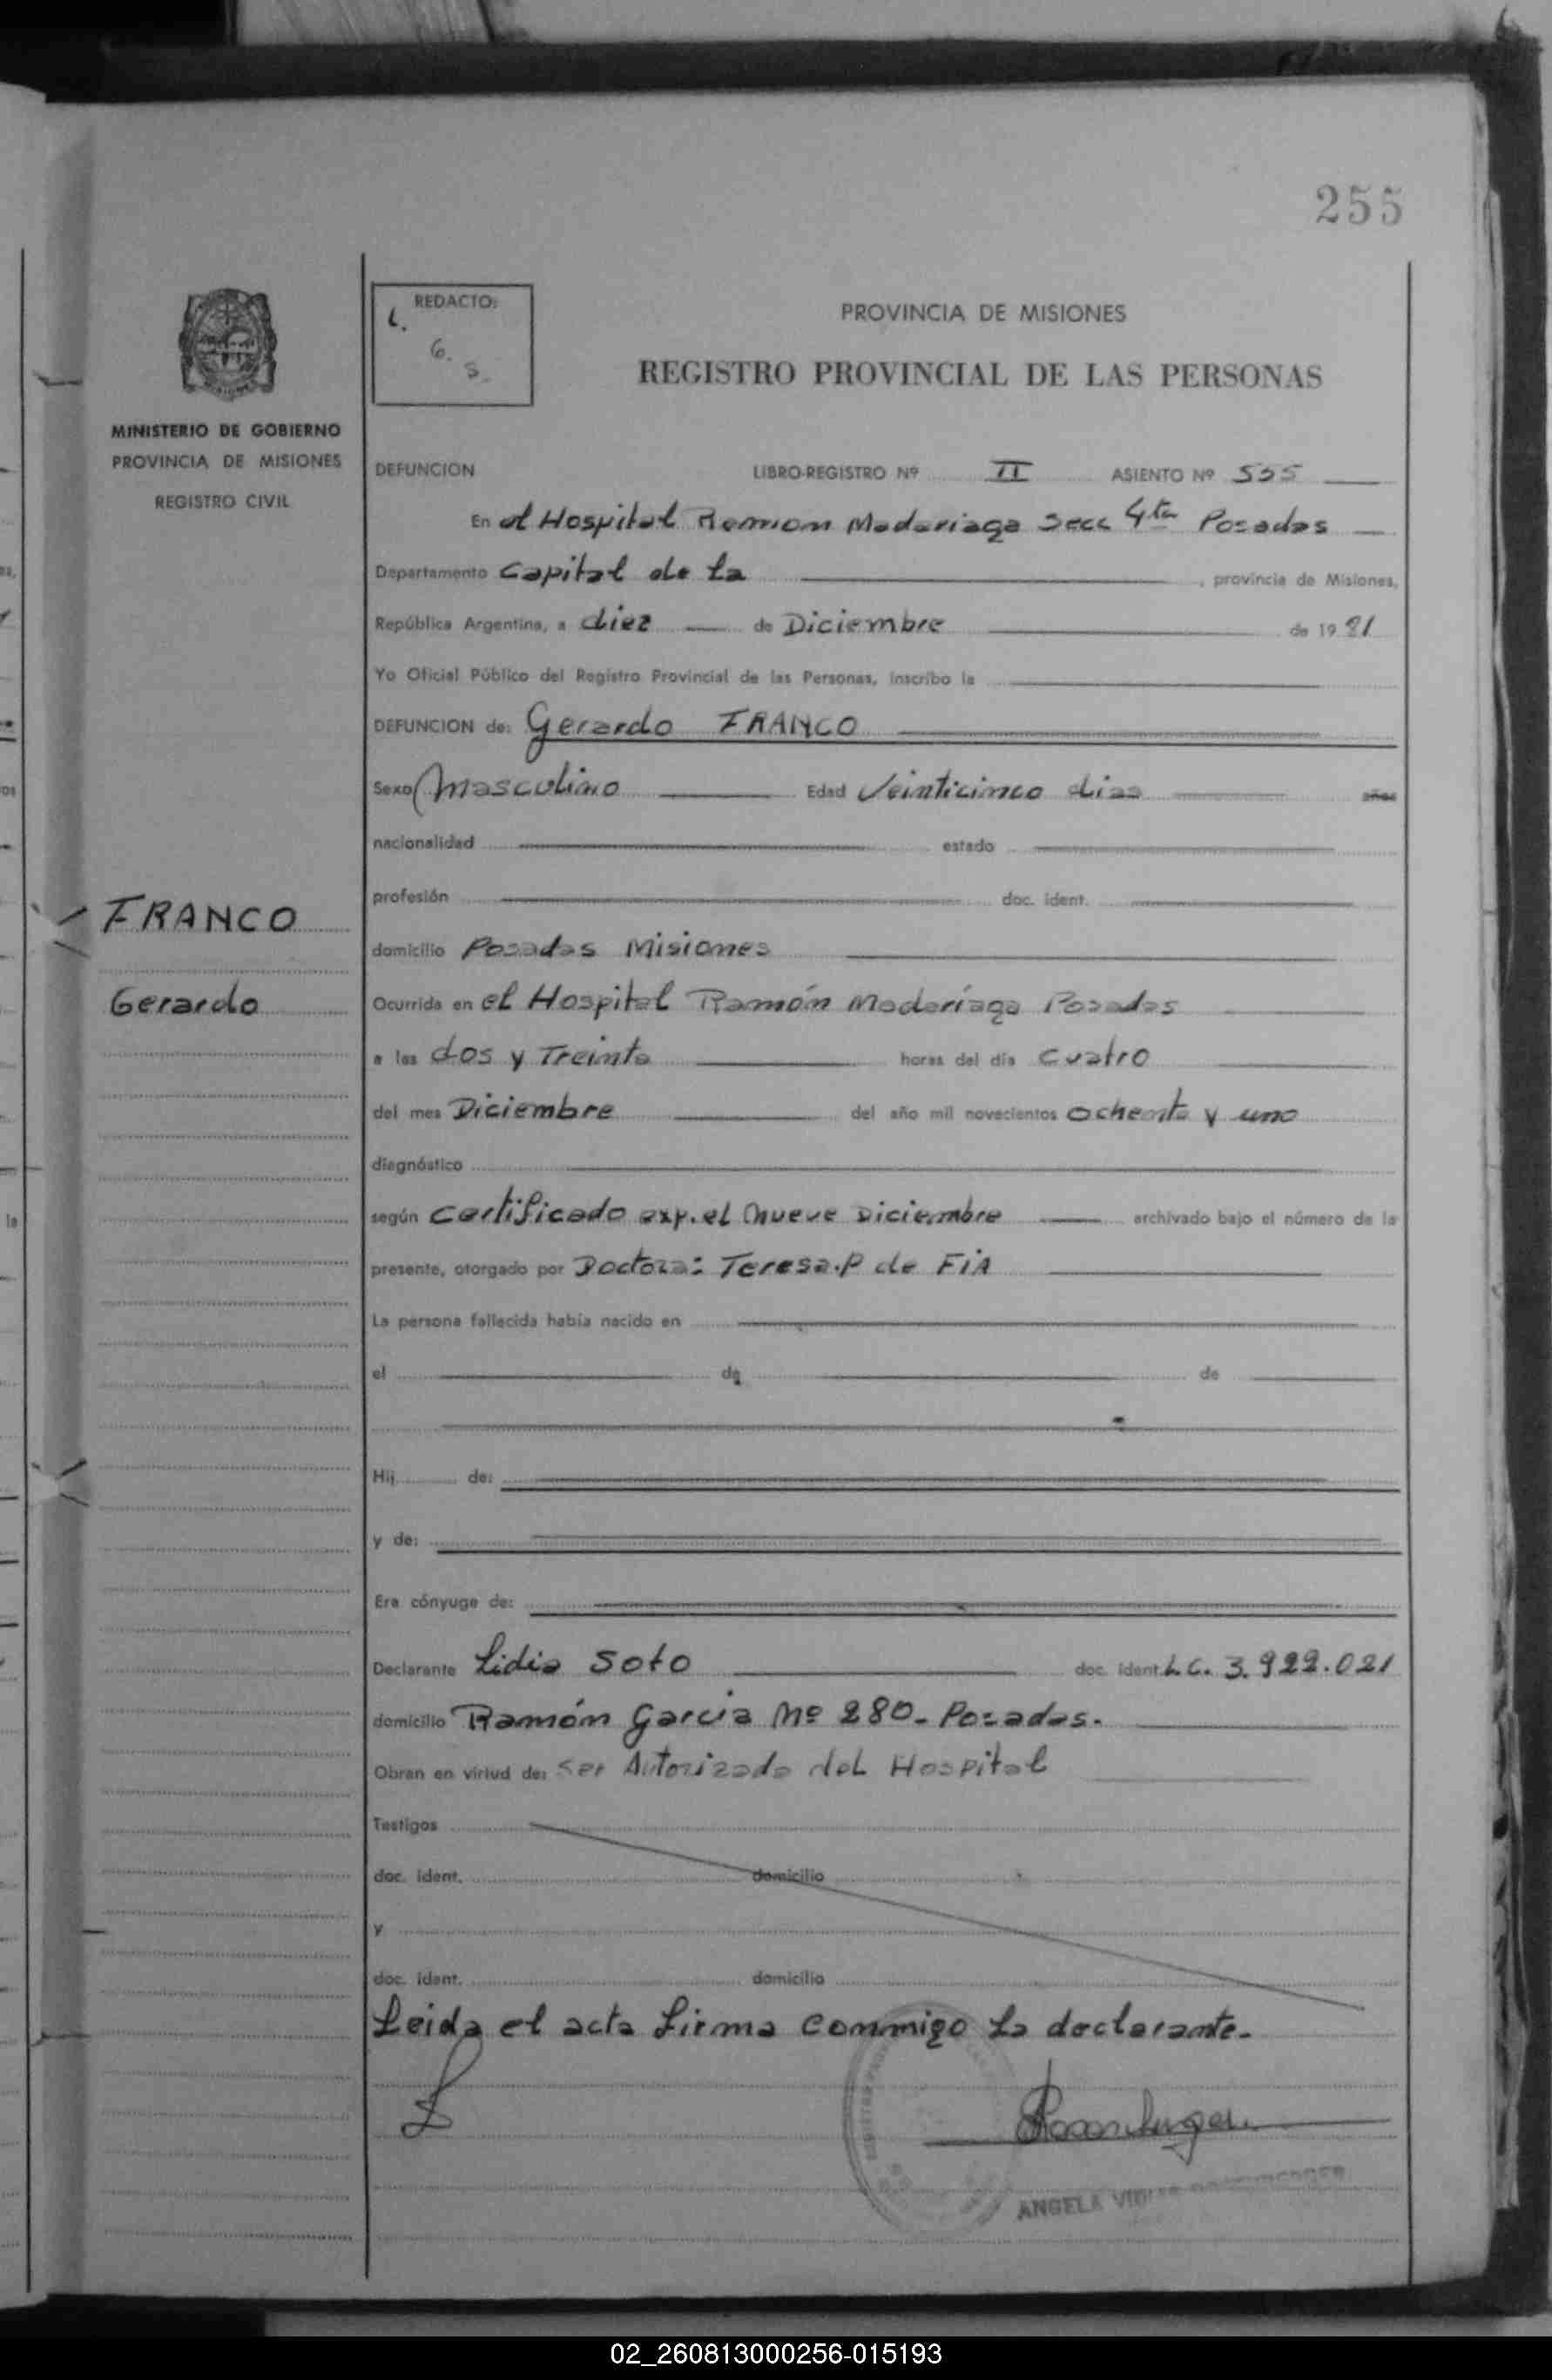 255
REDACTO:
L.
G.
S.
PROVINCIA DE MISIONES
REGISTRO PROVINCIAL DE LAS PERSONAS
MINISTERIO DE GOBIERNO
PROVINCIA DE MISIONES
REGISTRO CIVIL
FRANCO
Gerardo
DEFUNCION LIBRO-REGISTRO Nº II ASIENTO Nº 555
En el Hospital Ramon Madariaga Secc 4ta Posadas
Departamento Capital de la , provincia de Misiones,
República Argentina, a diez de Diciembre de 19 81
Yo Oficial Público del Registro Provincial de las Personas, inscribo la
DEFUNCION de: Gerardo FRANCO
Sexo Masculino Edad Veinticinco dias años
nacionalidad estado
profesión doc. ident.
domicilio Posadas Misiones
Ocurrida en el Hospital Ramón Madariaga Posadas
a las dos y Treinta horas del día cuatro
del mes Diciembre del año mil novecientos ochenta y uno
diagnóstico
según certificado exp. el nueve Diciembre archivado bajo el número de la
presente, otorgado por Doctora: Teresa.P de FiA
La persona fallecida había nacido en
el de de
Hij de:
y de:
Era cónyuge de:
Declarante Lidia Soto doc. ident. L.C. 3.922.021
domicilio Ramón Garcia Nº 280- Posadas.
Obran en virtud de: ser Autorizada del Hospital
Testigos
doc. ident. domicilio
y
doc. ident. domicilio
Leida el acta firma conmigo la declarante.
ANGELA
02_260813000256-015193